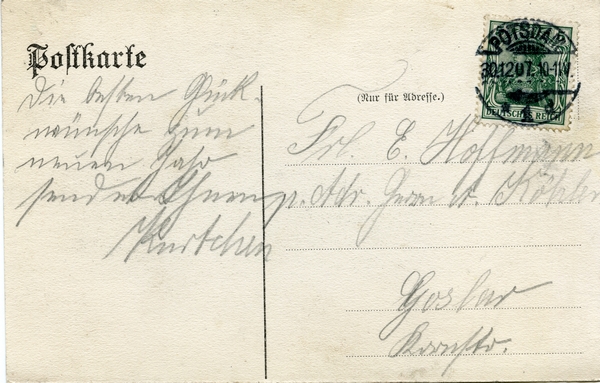 Postkarte
Die besten Glück-
wünsche zum
neuen Jahr
sendet Ihnen
Kurtchen
(Nur für Adresse.)
Frl. E. Hoffmann
p. Adr. Herrn W. Köhler
Goslar
Kornstr.
POTSDAM
30.12.07. 10-11.V.
DEUTSCHES REICH